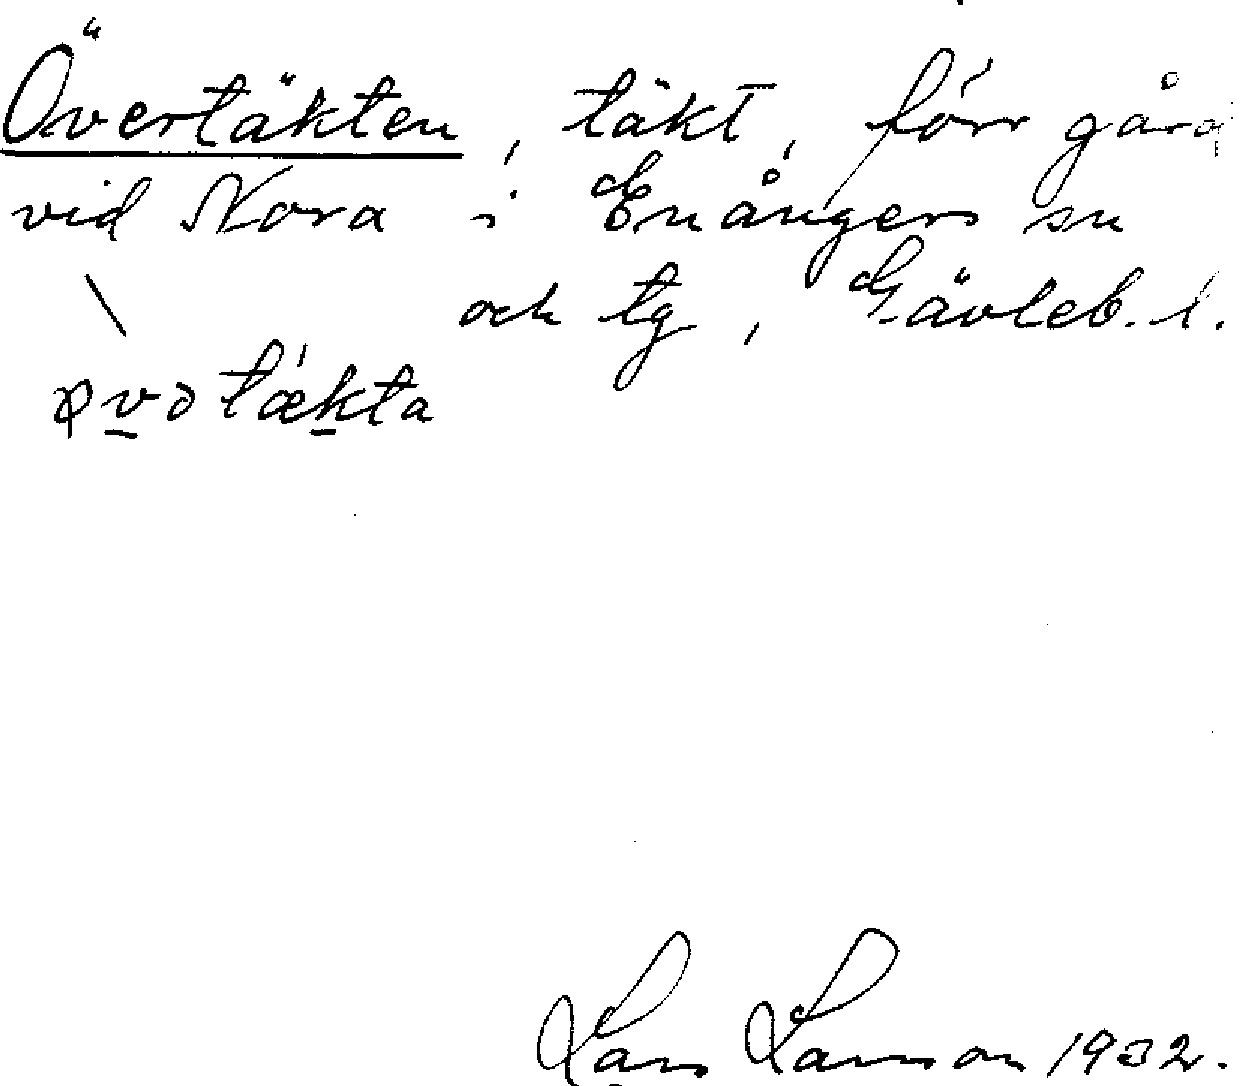 Övertäkten, täkt, förr gård
vid Nora i Enångers sn
och tg, Gävleb. l.
øvətǽkta
Lars Larsson 1932.